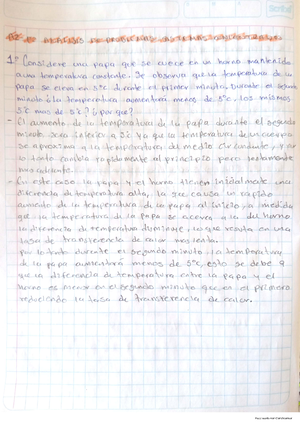 1.- Considere una papa que se cuece en un horno mantenido
a una temperatura constante. Se observa que la temperatura de la
papa se eleva en 5°c durante el primer minuto. Durante el segundo
minuto ¿la temperatura aumentará menos de 5°c, los mismos
5°c mas de 5°c? ¿por que?
- El aumento de la temperatura de la papa durante el segundo
minuto sera inferior a 5°c ya que la temperatura de un cuerpo
se aproxima a la temperatura del medio circundante, y por
lo tanto cambia rapidamente al principio pero lentamente
mas adelante.
- En este caso la papa y el horno tienen inicialmente una
diferencia de temperatura alta, la se causa un rapido
aumento de la temperatura de la papa al inicio a medida
que la temperatura de la papa se acerca a la del horno
la diferencia de temperatura disminuye, lo que resulta en una
tasa de transferencia de calor mas lenta.
por lo tanto durante el segundo minuto, la temperatura
de la papa aumentará menos de 5°c, esto se debe a
que la diferencia de temperatura entre la papa y el
horno es menor en el segundo minuto que en el primero
reduciendo la tasa de transferencia de calor.